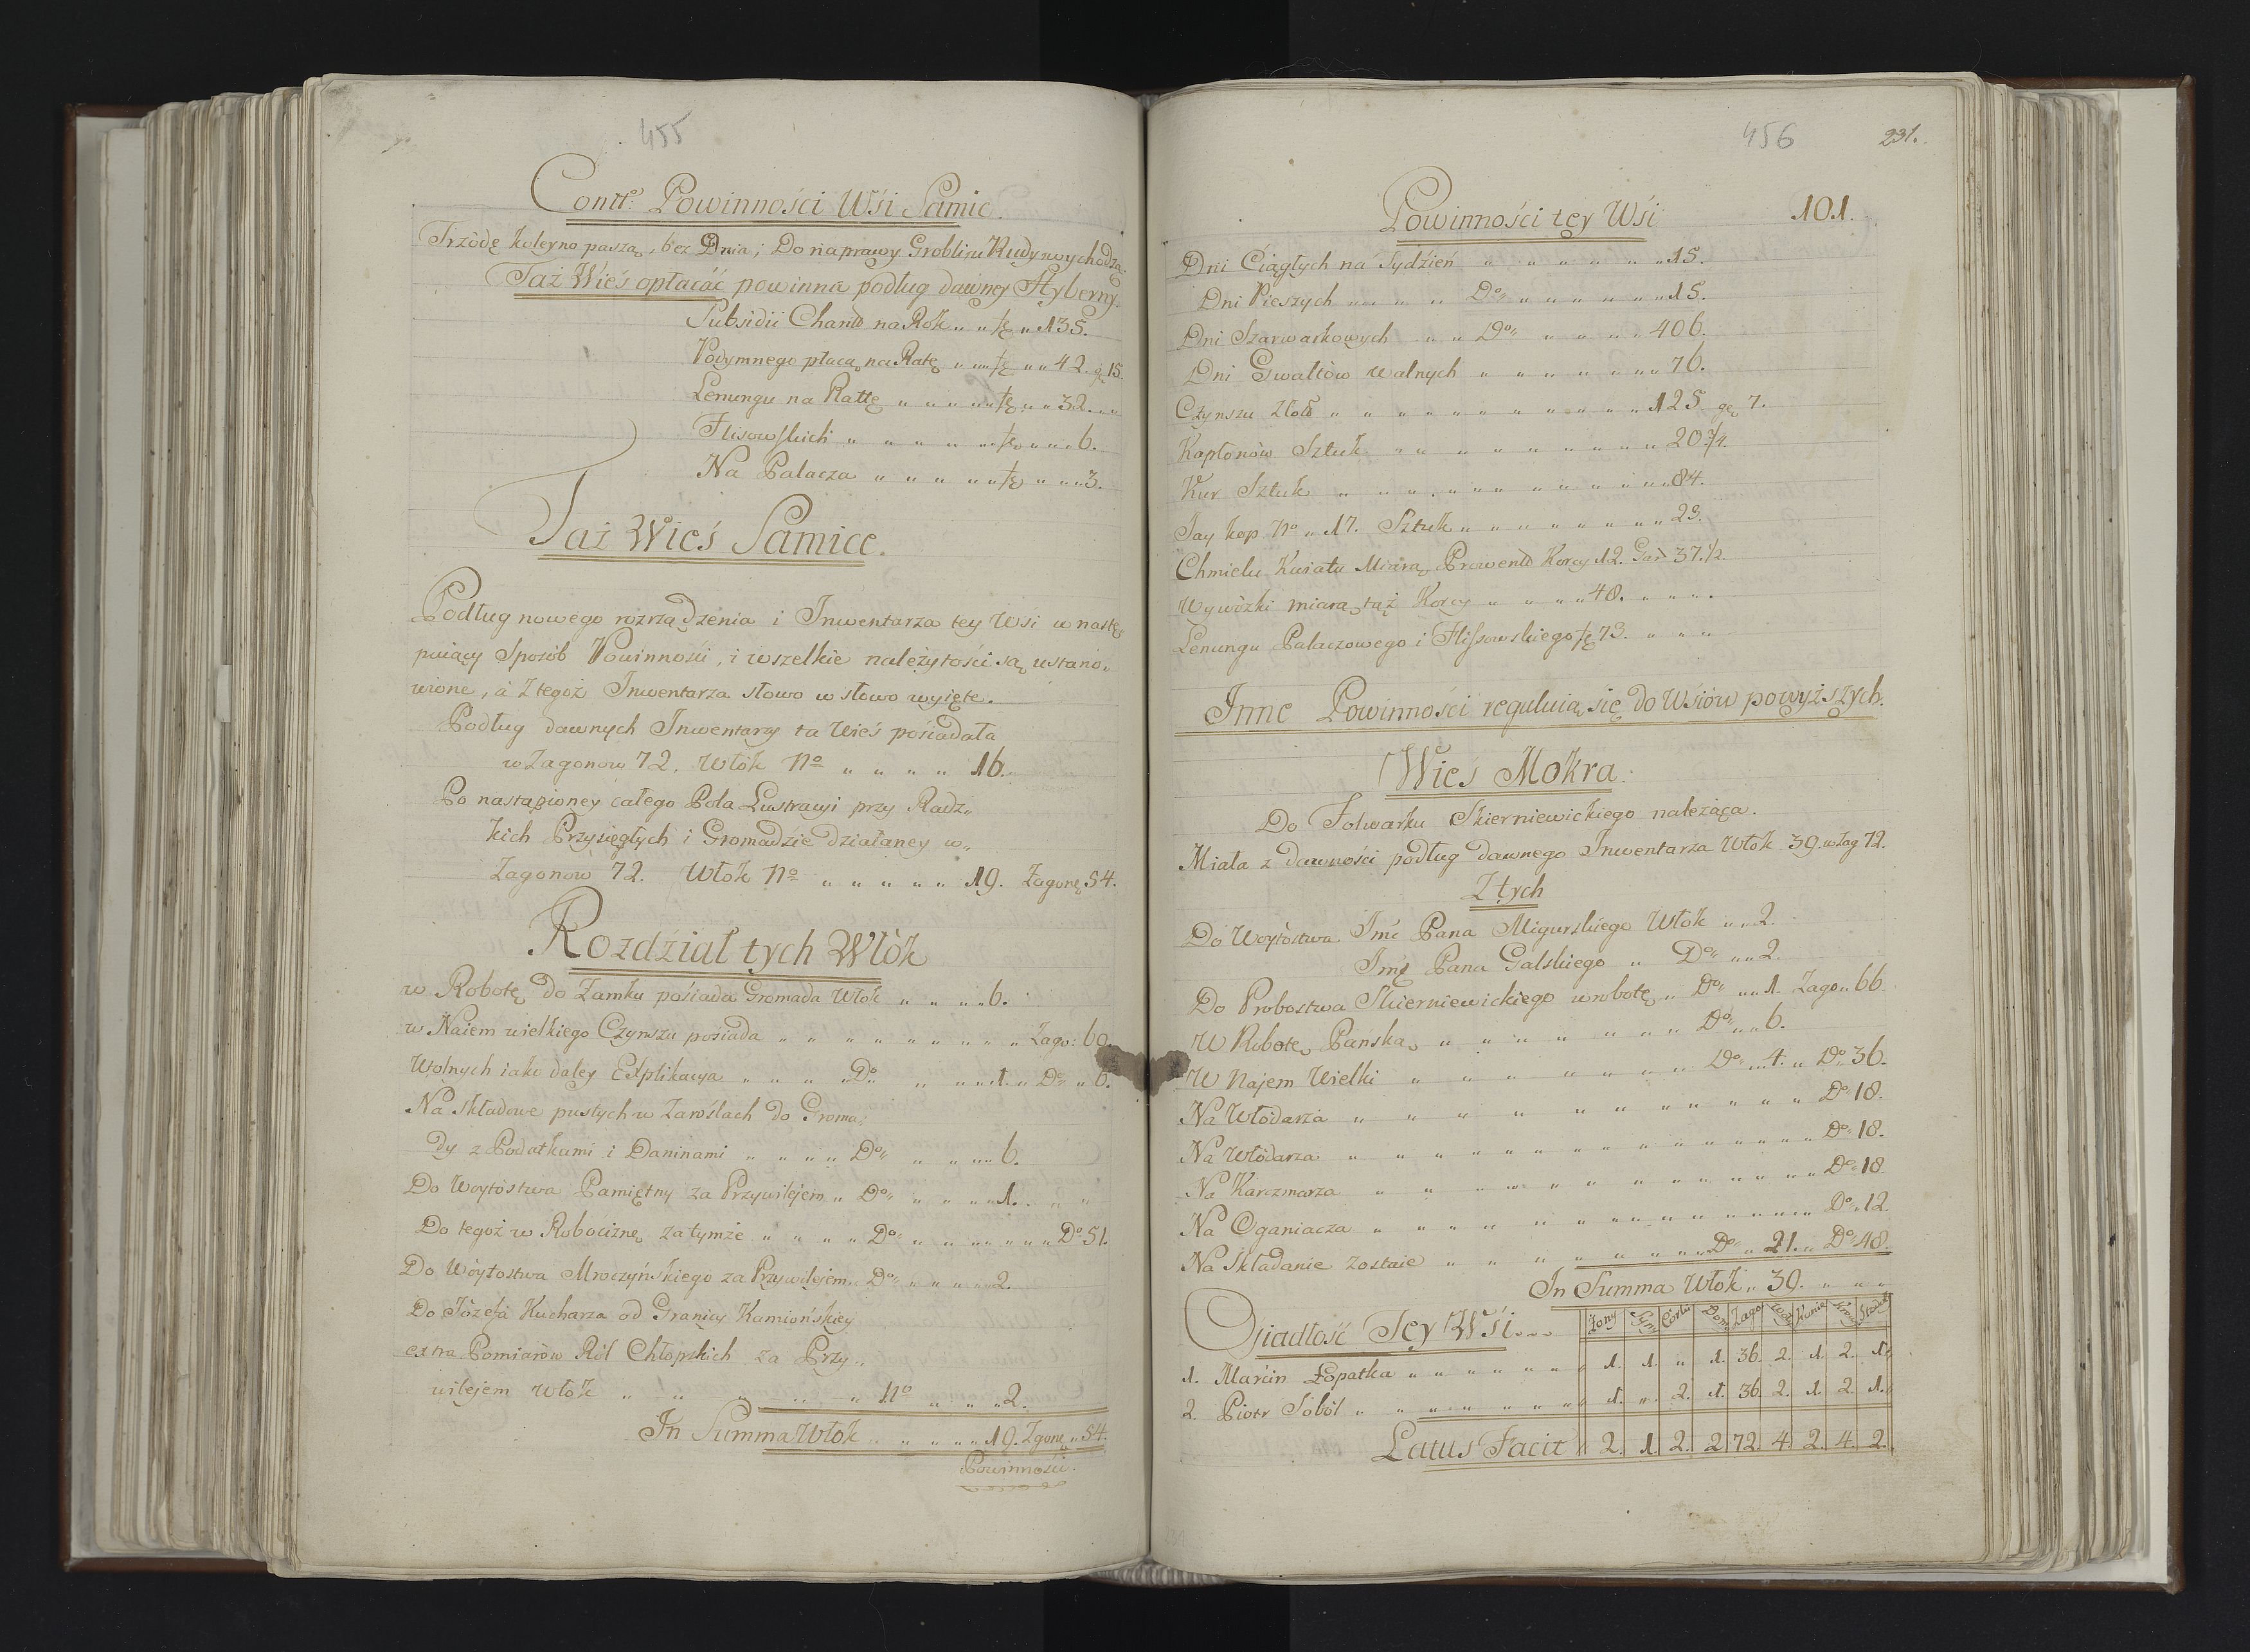 455
Contto Powinności Wśi Samic.
Trzodę koleyno paszą, bez Dnia; Do naprawy Grobli w Rudy wychodzą.
Taż Wieś opłacać powinna podług dawney Hyberny.
Subsidii Charit na Rok „ „ „ 135.
Podymnego płacą na Ratę „ „ „ 42. g 15.
Lenungu na Rattę „ „ „ „ 32. „ „
Flisowskich „ „ „ „ „ 6.
Na Palacza „ „ „ „ „ 3.
Taż Wieś Samice.
Podług nowego rozrządzenia i Inwentarza tey Wsi w nastę
puiący Sposób Powinności, i wszelkie należytości są ustano„
wione, à Ztegoż Inwentarza słowo w słowo wyięte.
Podług dawnych Inwentarzy ta Wieś pośiadała
w Zagonow 72. Włók No „ „ „ „ 16.
Po nastąpioney całego Pola Lustracyi przy Radz„
kich Przysięgłych i Gromadzie działaney w„
Zagonow 72. Włók No „ „ „ „ „ 19. Zagonę 54.
Rozdział tych Włók
w Robotę do Zamku pośiada Gromada Włok „ „ „ „ 6.
w Naiem wielkiego Czynszu pośiada „ „ „ „ „ „ „ „ Zago: 60.
Wolnych iako daley Explikacya „ „ „ Do „ „ „ 1. „ Do „ 6.
Na składowe pustych w Zaroślach do Groma„
dy z Podatkami i Daninami „ „ „ „ Do „ „ „ „ 6.
Do Woytostwa Pamiętny za Przywilejem „ Do „ „ „ „ 1. „ „
Do tegoż w Robociznę za tymże „ „ „ „ Do „ „ „ „ „ Do 51.
Do Wóytostwa Mroczyńskiego za Przywilejem „ Do „ „ „ „ 2.
Do Józefa Kucharza od Granicy Kamiońskiey
extra Pomiarow Ról Chłopskich za Przy„
wilejem Włók „ „ „ „ „ No „ „ „ 2.
In Summa Włok „ „ „ „ 19. Zgonę „ 54.
Powinnośći.
456
231.
Powinności tey Wśi
101.
Dni Ciągłych na Tydzień „ „ „ „ „ „ 15.
Dni Pieszych „ „ „ „ Do „ „ „ „ „ „ 15.
Dni Szarwarkowych „ „ Do „ „ „ „ 406.
Dni Gwałtów walnych „ „ „ „ „ „ „ 76.
Czynszu Złott „ „ „ „ „ „ „ „ „ „ 125. gę 7.
Kapłonów Sztuk „ „ „ „ „ „ „ „ „ 20 3/4.
Kur Sztuk „ „ „ „ „ „ „ „ „ „ „ 84.
Jay kop No „ 17. Sztuk „ „ „ „ „ „ „ 23.
Chmielu Kwiatu Miarą Prowentt Korcy 12. Gar 37.1/2.
Wywózki miarą taż Korcy „ „ „ „ 48. „ „ „ „
Lenungu Palaczowego i Flissowskiego 73. „ „ „
Inne Powinności reguluią się do Wśiów powyższych.
Wieś Mokra.
Do Folwarku Skierniewickiego należąca.
Miała z dawności podług dawnego Inwentarza Włok 39. w Zag 72.
Z tych
Do Woytostwa Jmć Pana Migurskiego Włok „ „ 2.
Jmć Pana Galskiego „ Do „ „ 2.
Do Probostwa Skierniewickiego w robotę „ Do „ „ 1. Zago „ 66.
W Robotę Pańską „ „ „ „ „ „ „ Do „ „ 6.
W Najem Wielki „ „ „ „ „ „ „ Do „ „ 4. „ Do 36.
Na Włodarza „ „ „ „ „ „ „ „ „ „ „ Do 18.
Na Włodarza „ „ „ „ „ „ „ „ „ „ „ Do 18.
Na Karczmarza „ „ „ „ „ „ „ „ „ „ „ Do 18.
Na Oganiacza „ „ „ „ „ „ „ „ „ „ „ Do 12.
Na Składanie zostaie „ „ „ „ „ „ „ Do „ 21. „ Do 48.
In Summa Włok „ 39. „ „ „
Osiadłość Tey Wśi „ „ „ Żony Syn Corki Dom Zago Woły Konie Krow
1. Marcin Łopatka „ „ „ „ „ „ 1. 1. „ 1. 36. 2. 1. 2. 1.
2. Piotr Soból „ „ „ „ „ „ „ 1. „ 2. 1. 36. 2. 1. 2. 1.
Latus Facit „ 2. 1. 2. 2 72. 4. 2. 4. 2.